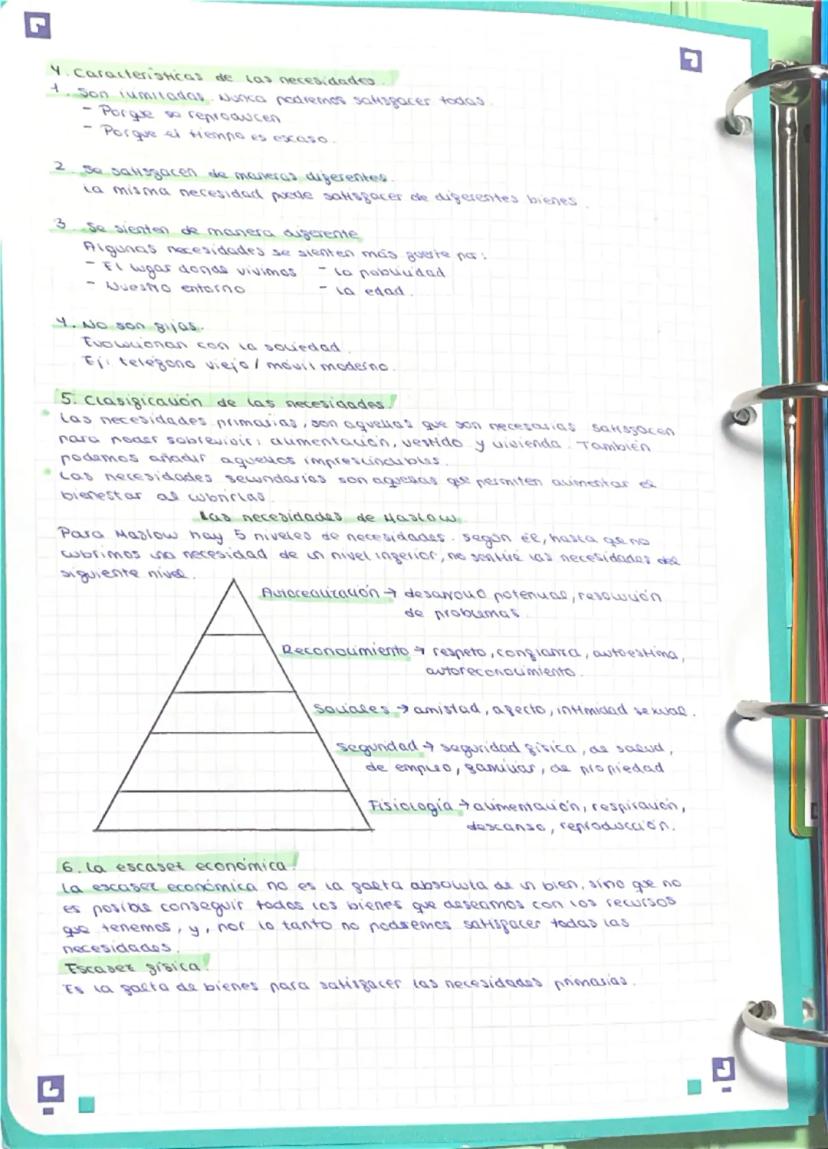 4. Características de las necesidades.
1. Son ilimitadas. Nunca podremos satisfacer todas.
- Porque se reproducen
- Porque el tiempo es escaso.
2. Se satisfacen de maneras diferentes.
La misma necesidad puede satisfacer de diferentes bienes.
3. Se sienten de manera diferente
Algunas necesidades se sienten más fuerte por:
- El lugar donde vivimos - La publicidad
- Nuestro entorno - La edad.
4. No son fijas.
Evolucionan con la sociedad.
Ej: teléfono viejo / móvil moderno.
5. Clasificación de las necesidades.
Las necesidades primarias, son aquellas que son necesarias satisfacen
para poder sobrevivir: alimentación, vestido y vivienda. También
podemos añadir aquellos imprescindibles.
Las necesidades secundarias son aquellas que permiten aumentar el
bienestar al cubrirlas.
Las necesidades de Maslow.
Para Maslow hay 5 niveles de necesidades. Según él, hasta que no
cubrimos una necesidad de un nivel inferior, no sentiré las necesidades del
siguiente nivel.
Autorealización → desarrollo potencial, resolución
de problemas.
Reconocimiento → respeto, confianza, autoestima,
autoreconocimiento.
Sociales → amistad, afecto, intimidad sexual.
Seguridad → seguridad física, de salud,
de empleo, familiar, de propiedad
Fisiología → alimentación, respiración,
descanso, reproducción.
6. La escasez económica.
La escasez económica no es la falta absoluta de un bien, sino que no
es posible conseguir todos los bienes que deseamos con los recursos
que tenemos, y, por lo tanto no podremos satisfacer todas las
necesidades.
Escasez física.
Es la falta de bienes para satisfacer las necesidades primarias.